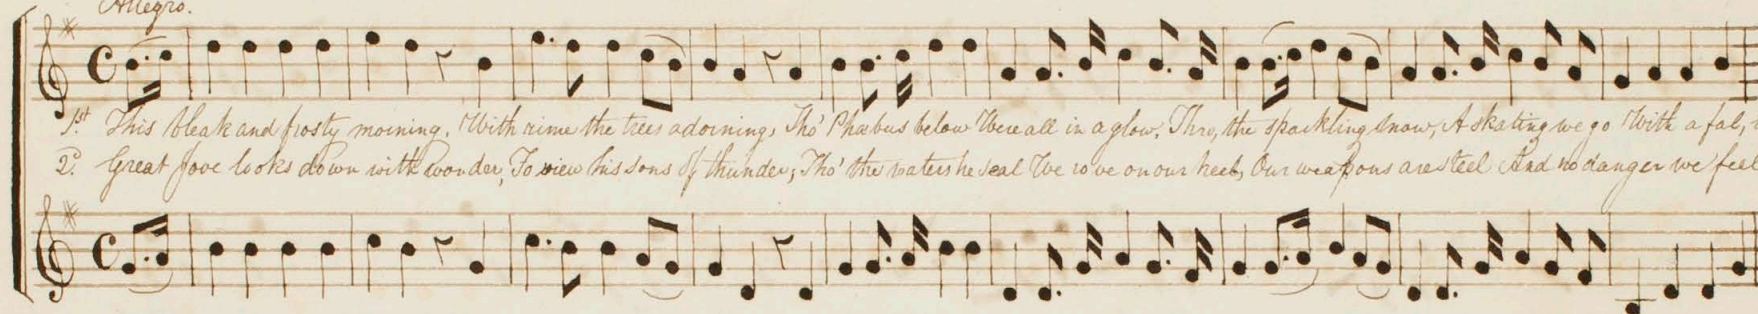 Allegro.
1st This bleak and frosty morning, With rime the trees adorning, Tho' Phœbus below Were all in a glow, Thro, the sparkling snow, A skating we go With a fal,
2d. Great Jove looks down with wonder, To view his sons of thunder, Tho' the waters he seal We rove on our heel, Our weapons are steel And no danger we feel